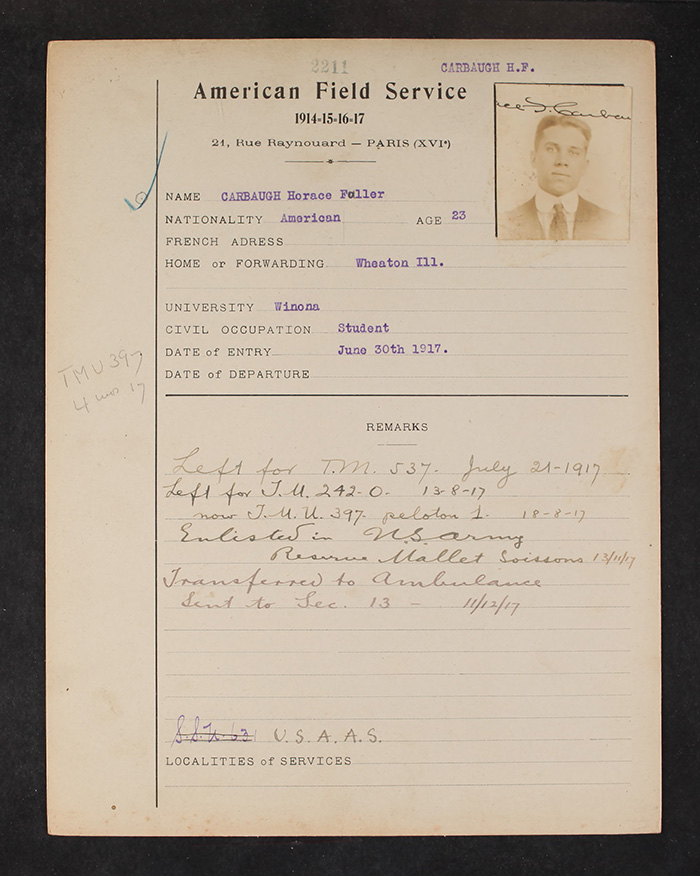 2211
CARBAUGH H.F.
American Field Service
1914-15-16-17
21, Rue Raynouard — PARIS (XVIe)
NAME CARBAUGH Horace Fuller
NATIONALITY American AGE 23
FRENCH ADRESS
HOME or FORWARDING Wheaton Ill.
UNIVERSITY Winona
CIVIL OCCUPATION Student
DATE of ENTRY June 30th 1917.
DATE of DEPARTURE
TMU 397
4 mos 17
REMARKS
Left for T.M. 537. July 21-1917
Left for T.M. 242-0. 13-8-17
now T.M.U. 397. peloton 1. 18-8-17
Enlisted in U.S. Army
Reserve Mallet Soissons 13/11/17
Transferred to Ambulance
Sent to Sec. 13 - 11/12/17
S.S.U. 631 U.S.A.A.S.
LOCALITIES of SERVICES